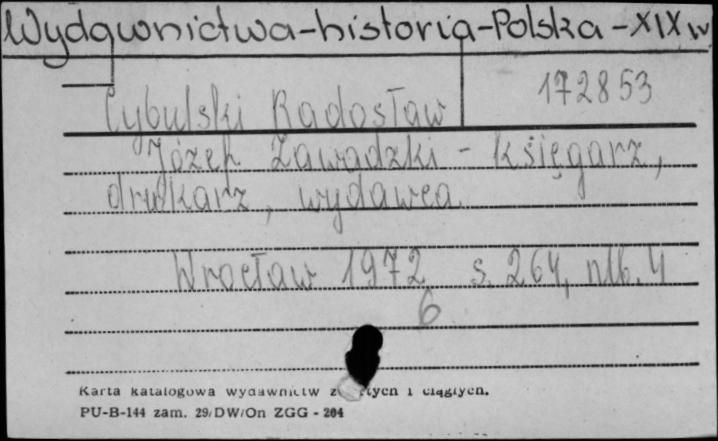 Wydawnictwa-historia-Polska-XIX w
172853
Cybulski Radosław
Józef Zawadzki - księgarz,
drukarz, wydawca.
Wrocław 1972 s. 264, nlb. 4
6
Karta katalogowa wydawnictw i ciągłych.
PU-B-144 zam. 29/DW/On ZGG - 204